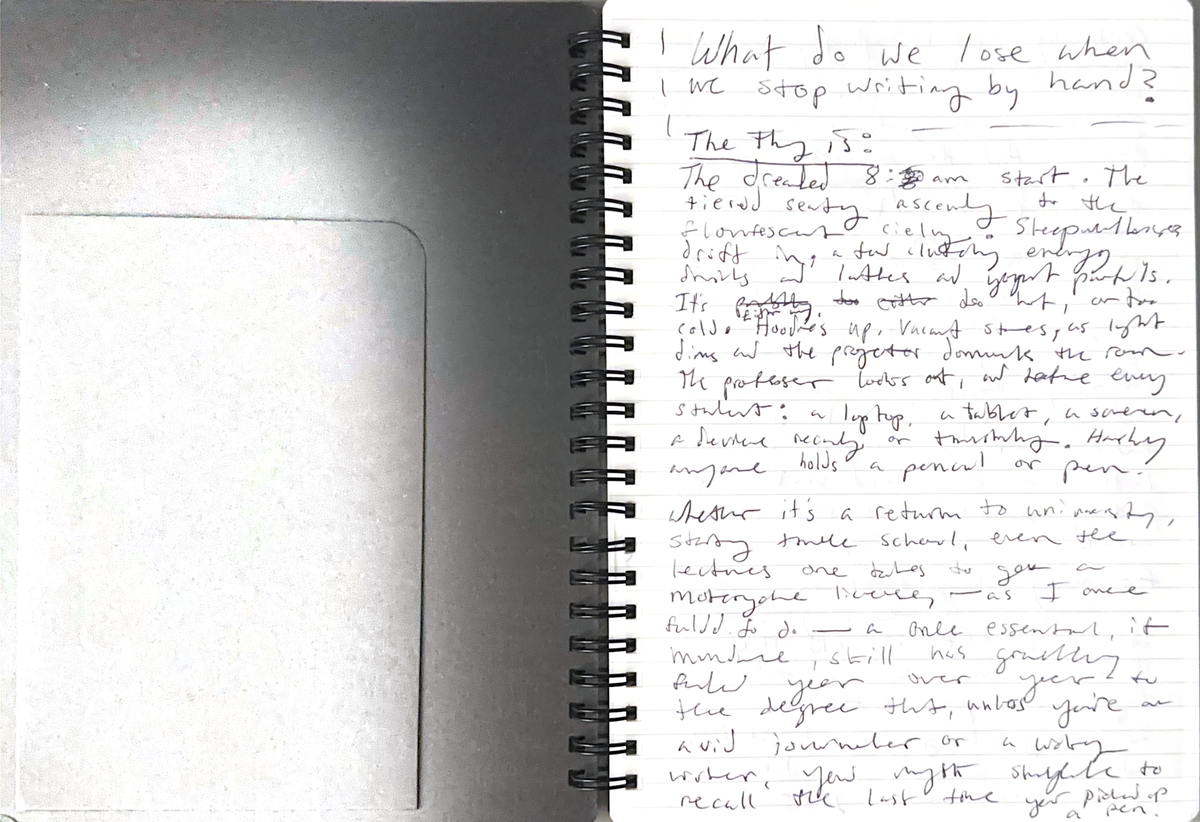 What do we lose when
we stop writing by hand?
The Thing is:
The dreaded 8: am start. The
tiered seating ascending to the
flourescent cieling.
drift in, a few clutching energy
drinks and lattes and yogurt parfaits.
It's either too hot, or too
cold. Hoodies up. Vacant stares, as light
dims and the projector dominates the room.
The professer looks out, and before every
student: a laptop, a tablet, a screen,
a device recording or transcribing. Hardly
anyone holds a pencil or pen.
Whether it's a return to university,
starting trade school, even the
lectures one takes to get a
motorcycle license, — as I once
failed to do — a once essential, if
mundane, still has gradually
faded year over year to
the degree that, unless you're an
avid journaler or a working
writer, you might struggle to
recall the last time you picked up
a pen.